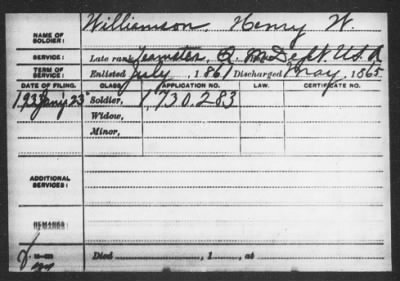 NAME OF SOLDIER: Williamson, Henry W.
SERVICE: Late rank Teamster, Q. M. Dept. U.S.A
TERM OF SERVICE: Enlisted July, 1861 Discharged May, 1865
DATE OF FILING. CLASS. APPLICATION NO. LAW. CERTIFICATE NO.
1933 Jan'y 23 Soldier, 1,730.283
Widow,
Minor,
ADDITIONAL SERVICES:
REMARKS:
Died , 1 , at